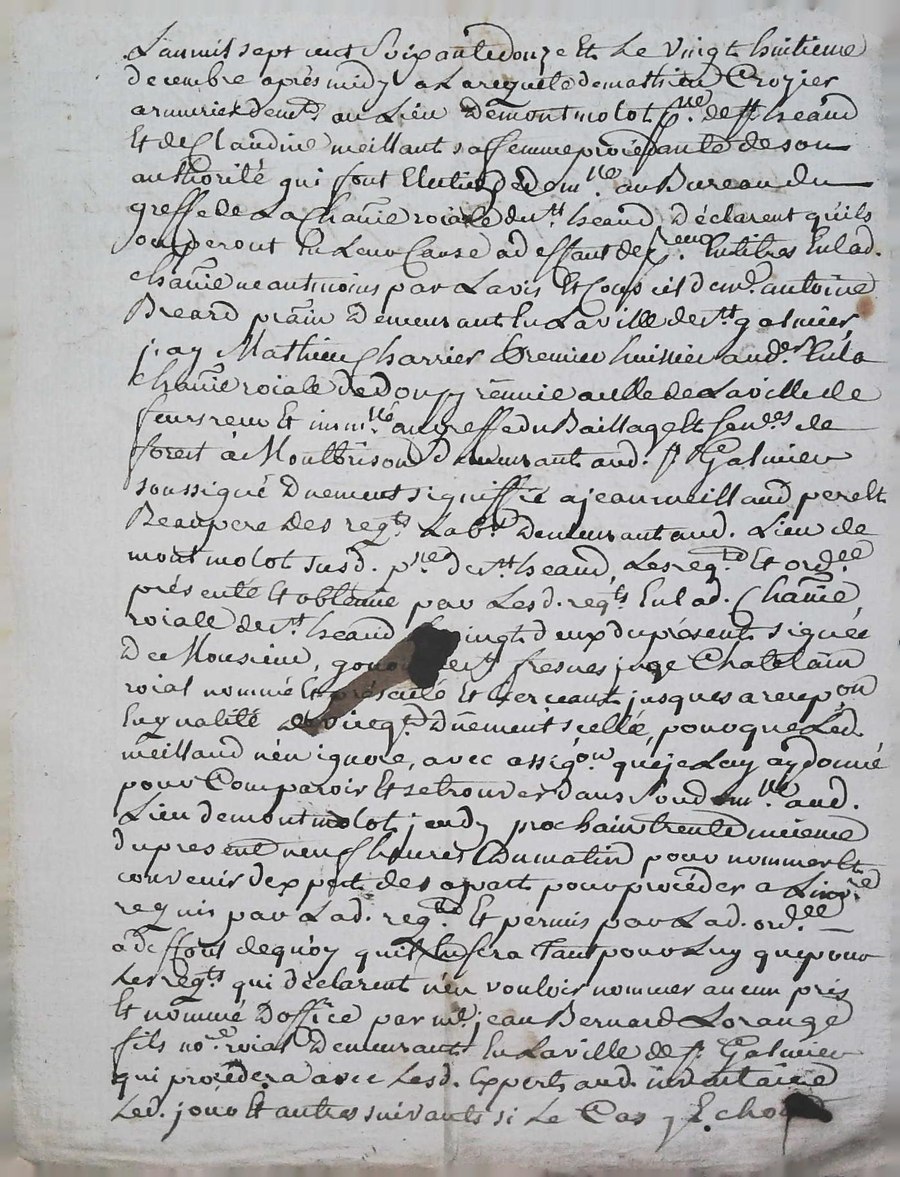 L'an mil sept cent soixante douze et Le vingt huitieme
decembre après midy a La requete de mathieu Crozier
armurier demt. au Lieu de montmolot psse. de st heand
Et de Claudine meillant sa femme procédante de son
authorité qui font Election de domlle. au Bureau du
greffe de La Chanie roiale du st heand déclarent qu'ils
ouperont En Leur Cause ad effaut de freno. Entitres En lad.
chanie neantmoins par L'avis Et Conseil de me. antoine
Breard prain demeurant En La ville de st galmier,
j'ay Mathieu Charrier premier huissier aud. En la
Chanie roiale de Donzy réunie a celle de La ville de
feurs reçu Et immlé. au greffe du Baillage Et senes. de
forest à Montbrison demeurant aud. st Galmier
soussigné duement signiffié a jean meillaud pere Et
Beaupere des reqts. Labr. demeurant aud. Lieu de
montmolot susd. psse de st heand, Les reqte. Et ordce
présentée Et obtenue par Lesd. reqts. En lad. Chanie
roiale de st heand vingt deux du présent signée
De Monsieur, gonon fresnes juge Chatelain
roial nommé Et présenté Et Exerceant jusques a recepon
En qualité duement scellé, pour que Led.
meillaud n'en ignore, avec assigon. que je Luy ay donné
pour Comparoir Et se trouver dans son domlle. aud.
Lieu de montmolot jeudy prochain trente unieme
du present neuf heures du matin pour nommer Et
convenir d'expert des a part pour procéder a L'invre
requis par Lad. reqte. Et permis par Lad. ordce
a deffaut de quoy qu'il En sera Tant pour Luy que pour
Les reqts. qui déclarent n'en vouloir nommer aucun pris
Et nommé D'office par me. jean Bernard Lorange
fils nore. roial Demeurant En La ville de st. Galmier
qui procédera avec Lesd. Experts aud. inventaire
Led. jour Et autres suivants si Le Cas y Echoid